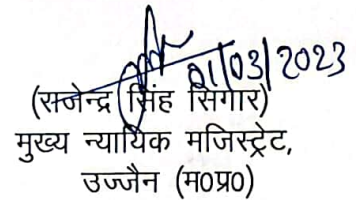 01/03/2023
(राजेन्द्र सिंह सिंगार)
मुख्य न्यायिक मजिस्ट्रेट,
उज्जैन (म०प्र०)